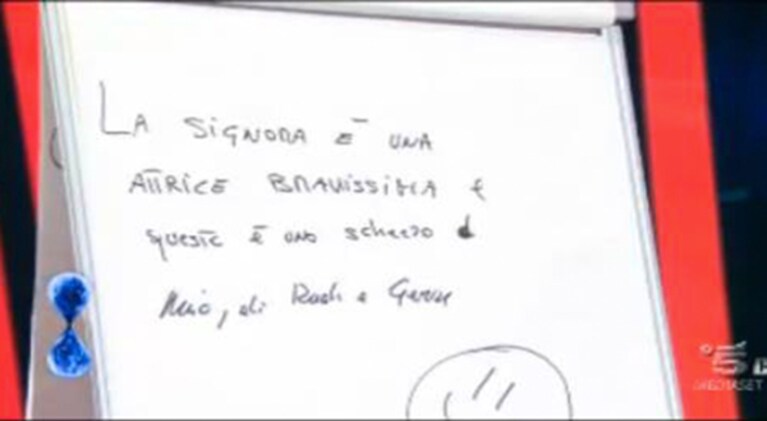 LA SIGNORA È UNA
ATTRICE BRAVISSIMA E
QUESTO È UNO SCHERZO
Mio, di Rudi e Gerry
5
MEDIASET